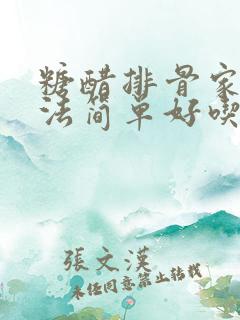 糖醋排骨家
法简单好喫
張文漢
未经同意禁止转载